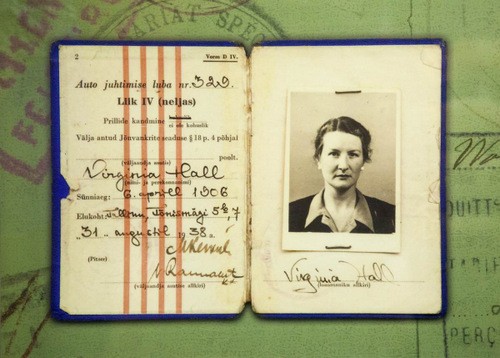 2
Vorm D IV.
Auto juhtimise luba nr. 329.
Liik IV (neljas)
Prillide kandmine
ei ole kohuslik
Välja antud Jõuvankrite seaduse § 18 p. 4 põhjal
poolt.
(väljaandja asutis)
Virginia Hall
(nimi- ja perekonnanimi)
Sünniaeg: 6. aprill 1906
Elukoht: Tallinn, Tõnismägi 5a, 7
"31" augustil 1938 a.
(Pitser)
(väljaandja asutise allkiri)
Virginia Hall
(kasutamise allkiri)
ARIAT SPÉC
PERÇ